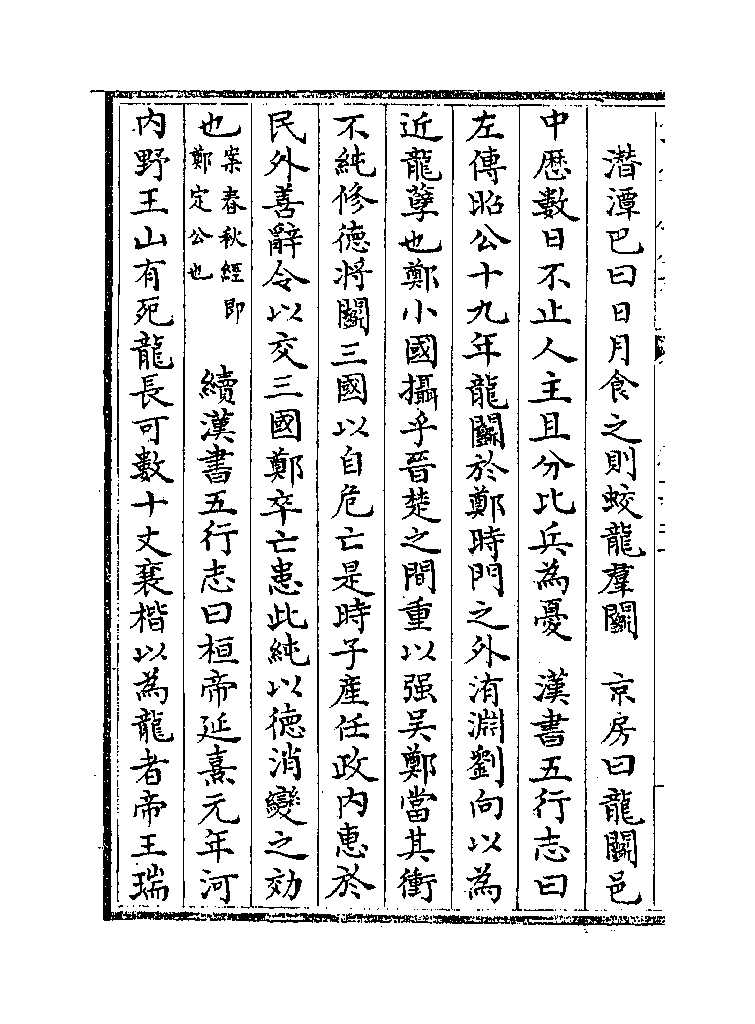 潜潭巴曰日月食之則蛟龍羣鬭　京房曰龍鬭邑
中厯數日不止人主且分比兵為憂　漢書五行志曰
左傳昭公十九年龍鬭於鄭時門之外洧淵劉向以為
近龍孽也鄭小國攝乎晉楚之間重以强吴鄭當其衝
不純修德將鬭三國以自危亡是時子產任政内惠於
民外善辭令以交三國鄭卒亡患此純以德消變之効
也案春秋經即鄭定公也　續漢書五行志曰桓帝延熹元年河
内野王山有死龍長可數十丈襄楷以為龍者帝王瑞